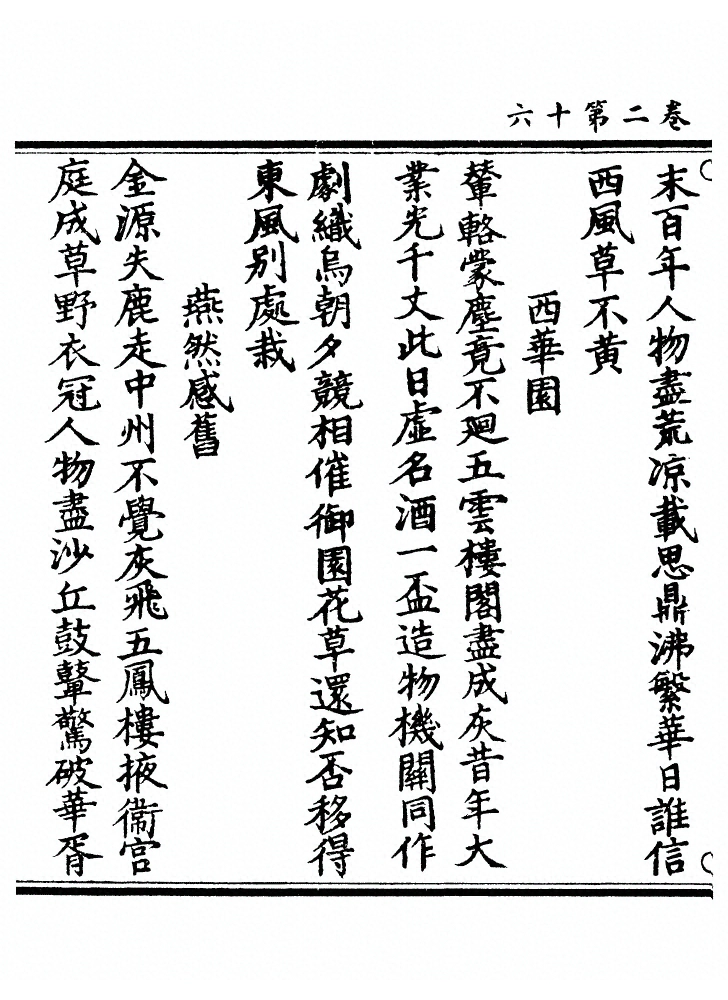 卷二第十六
末百年人物盡荒凉載思鼎沸繁華日誰信
西風草不黄
西華園
輦輅蒙塵竟不廻五雲樓閣盡成灰昔年大
業光千丈此日虛名酒一盃造物機關同作
劇織烏朝夕競相催御園花草還知否移得
東風别處栽
燕然感舊
金源失鹿走中州不覺灰飛五鳳樓掖衛宫
庭成草野衣冠人物盡沙丘鼓鼙驚破華胥